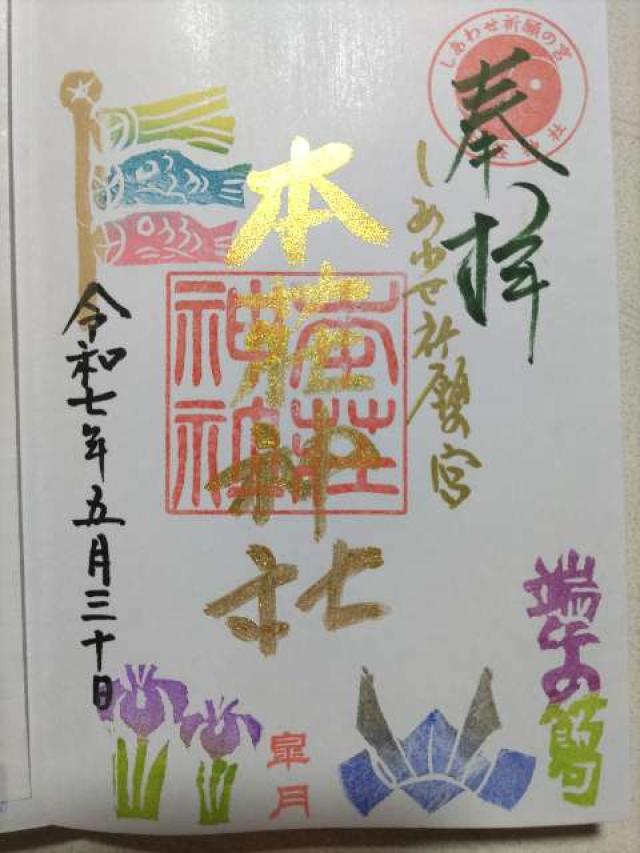 しあわせ祈願の宮
奉拝
しあわせ祈願宮
本荘神社
令和七年五月三十日
端午の節句
皐月